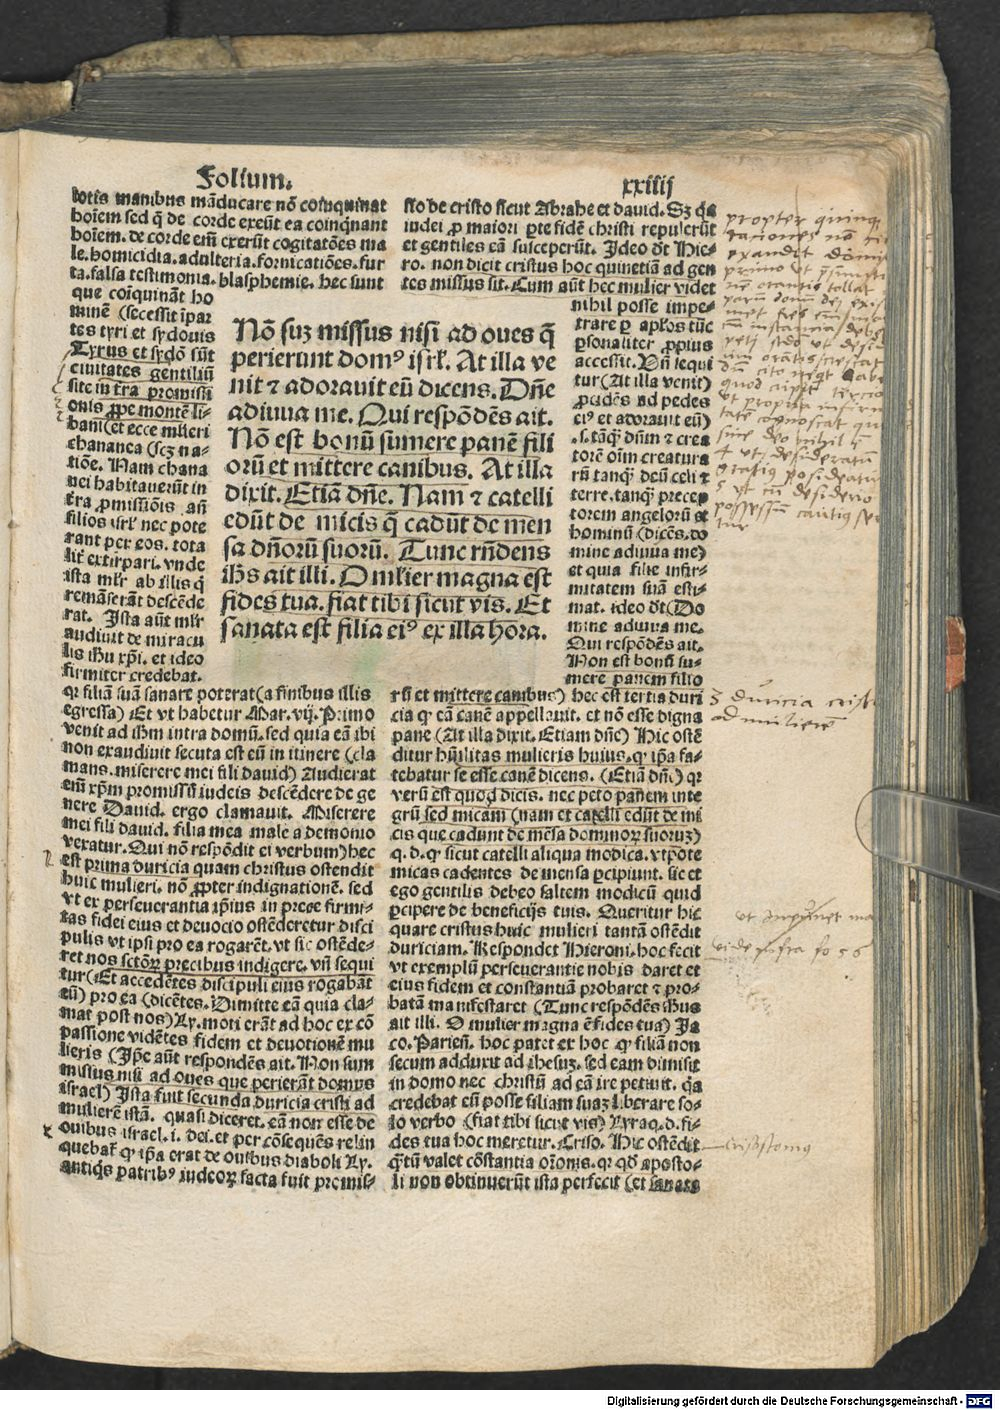 Folium. xxiiij
lotis manibus mãducare nõ coinquinat
hoĩem sed q̃ de corde exeũt ea coinq̃nant
hoĩem. de corde em̃ exeũnt cogitatões ma
le. homicidia. adulteria. fornicatiões. fur
ta. falsa testimonia. blasphemie. hec sunt
que coĩquinãt ho
minẽ (secessit ĩ par
tes tyri et sydonis
Tyrus et sydõ sũt
ciuitates gentiliũ
site in t̃ra promissi
onis ꝓpe montẽ li-
bani (et ecce mlieri
chananea (scʒ na-
tiõe. Nam chana
nei habitauerũt in
t̃ra ꝓmissiõis añ
filios isrl' nec pote
rant per eos. tota
lit̃ extirpari. vnde
ista ml'r ab illis q̃
remãserãt descẽde
rat. Ista aũt ml'r
audiuit de miracu
lis ihu xp̃i. et ideo
firmiter credebat.
qꝛ filiã suã sanare poterat (a finibus illis
egressa) Et vt habetur Mar. vij. Primo
venit ad ihm̃ intra domũ. sed quia eã ibi
non exaudiuit secuta est eũ in itinere (cla
mans. miserere mei fili dauid) Audierat
em̃ xp̃m promissũ iudeis descẽdere de ge
nere Dauid. ergo clamauit. Miserere
mei fili dauid. filia mea male a demonio
vexatur. Qui nõ respõdit ei verbum) hec
est prima duricia quam christus ostendit
huic mulieri. nõ ꝓpter indignationẽ. sed
vt ex perseuerantia ip̃ius in prece firmi-
tas fidei eius et deuocio ostẽderetur disci
pulis vt ipsi pro ea rogarẽt. vt sic ostẽde-
ret nos sctõꝝ precibus indigere. vñ sequi
tur (Et accedẽtes discipuli eius rogabãt
eũ) pro ea (dicẽtes. Dimitte eã quia cla-
mat post nos) Ly. moti erãt ad hoc ex cõ
passione vidẽtes fidem et deuotionẽ mu
lieris (Ip̃e aũt respondẽs ait. Non sum
missus nisi ad oues que perierãt domus
israel) Ista fuit secunda duricia cristi ad
mulierẽ istã. quasi diceret. eã non esse de
ouibus israel. i. dei. et per cõsequẽs relin
quebat̃ ꝙ ip̃a erat de ouibus diaboli Ly.
antiq̃s patribꝰ iudeoꝝ facta fuit promis-
Nõ suʒ missus nisi ad oues q̃
perierunt domꝰ isrl'. At illa ve
nit ⁊ adorauit eũ dicens. Dñe
adiuua me. Qui respõdẽs ait.
Nõ est bonũ sumere panẽ fili
orũ et mittere canibus. At illa
dixit. Etiã dñe. Nam ⁊ catelli
edũt de micis q̃ cadũt de men
sa dñorũ suorũ. Tunc rñdens
ihs̃ ait illi. O mlier magna est
fides tua. fiat tibi sicut vis. Et
sanata est filia eiꝰ ex illa hora.
sio de cristo sicut Abrahe et dauid. Sʒ q̃a
iudei ꝓ maiori ꝑte fidẽ christi repulerũt
et gentiles eã susceperũt. Ideo dt̃ Hie-
ro. non dicit cristus hoc quinetiã ad gen
tes missus sit. Cum aũt hec mulier videt
nihil posse impe-
trare ꝑ aplõs tũc
ꝑsonaliter ꝓpius
accessit. Vñ sequi
tur (At illa venit)
ꝓcidẽs ad pedes
eiꝰ et adorauit eũ)
.s. tãq̃ dñm ⁊ crea
torẽ oĩm creatura
rũ tanq̃ deũ celi ⁊
terre. tanq̃ precep
torem angelorũ et
hominũ (dicẽs. do
mine adiuua me)
et quia filie infir-
mitatem suã esti-
mat. ideo dt̃ (Do
mine adiuua me.
Qui respõdẽs ait.
Non est bonũ su-
mere panem filio
rũ et mittere canibus) hec est tertia duri
cia qꝛ eã canẽ appellauit. et nõ esse digna
pane (At illa dixit. Etiam dñe) Hic ostẽ
ditur hũilitas mulieris huius. qꝛ ip̃a fa-
tebatur se esse canẽ dicens. (Etiã dñe) qꝛ
verũ est quod dicis. nec peto panem inte
grũ sed micam (nam et catelli edũt de mi
cis que cadunt de mẽsa dominoꝝ suoruʒ)
q. d. ꝙ sicut catelli aliqua modica. vtpote
micas cadentes de mensa ꝑcipiunt. sic et
ego gentilis debeo saltem modicũ quid
ꝑcipere de beneficijs tuis. Queritur hic
quare cristus huic mulieri tantã ostẽdit
duriciam. Respondet Hieroni. hoc fecit
vt exemplũ perseuerantie nobis daret et
eius fidem et constantiã probaret ⁊ pro-
batã manifestaret (Tunc respõdẽs ihus
ait illi. O mulier magna ẽ fides tua) Ja
co. Parieñ. hoc patet ex hoc ꝙ filiã non
secum adduxit ad ihesuʒ. sed eam dimisit
in domo nec christũ ad eã ire petiuit. q̃a
credebat eũ posse filiam suaʒ liberare so-
lo verbo (fiat tibi sicut vis) Lyra q. d. fi-
des tua hoc meretur. Criso. Hic ostẽdit̃
q̃tũ valet cõstantia orõnis. qꝛ qd̃ aposto-
li non obtinuerũt ista perfecit (et sanata
propter quinq
rationes
primo ut
3 duricia crist
ad mulierẽ
vide infra fo 56
crisostomus
Digitalisierung gefördert durch die Deutsche Forschungsgemeinschaft - DFG